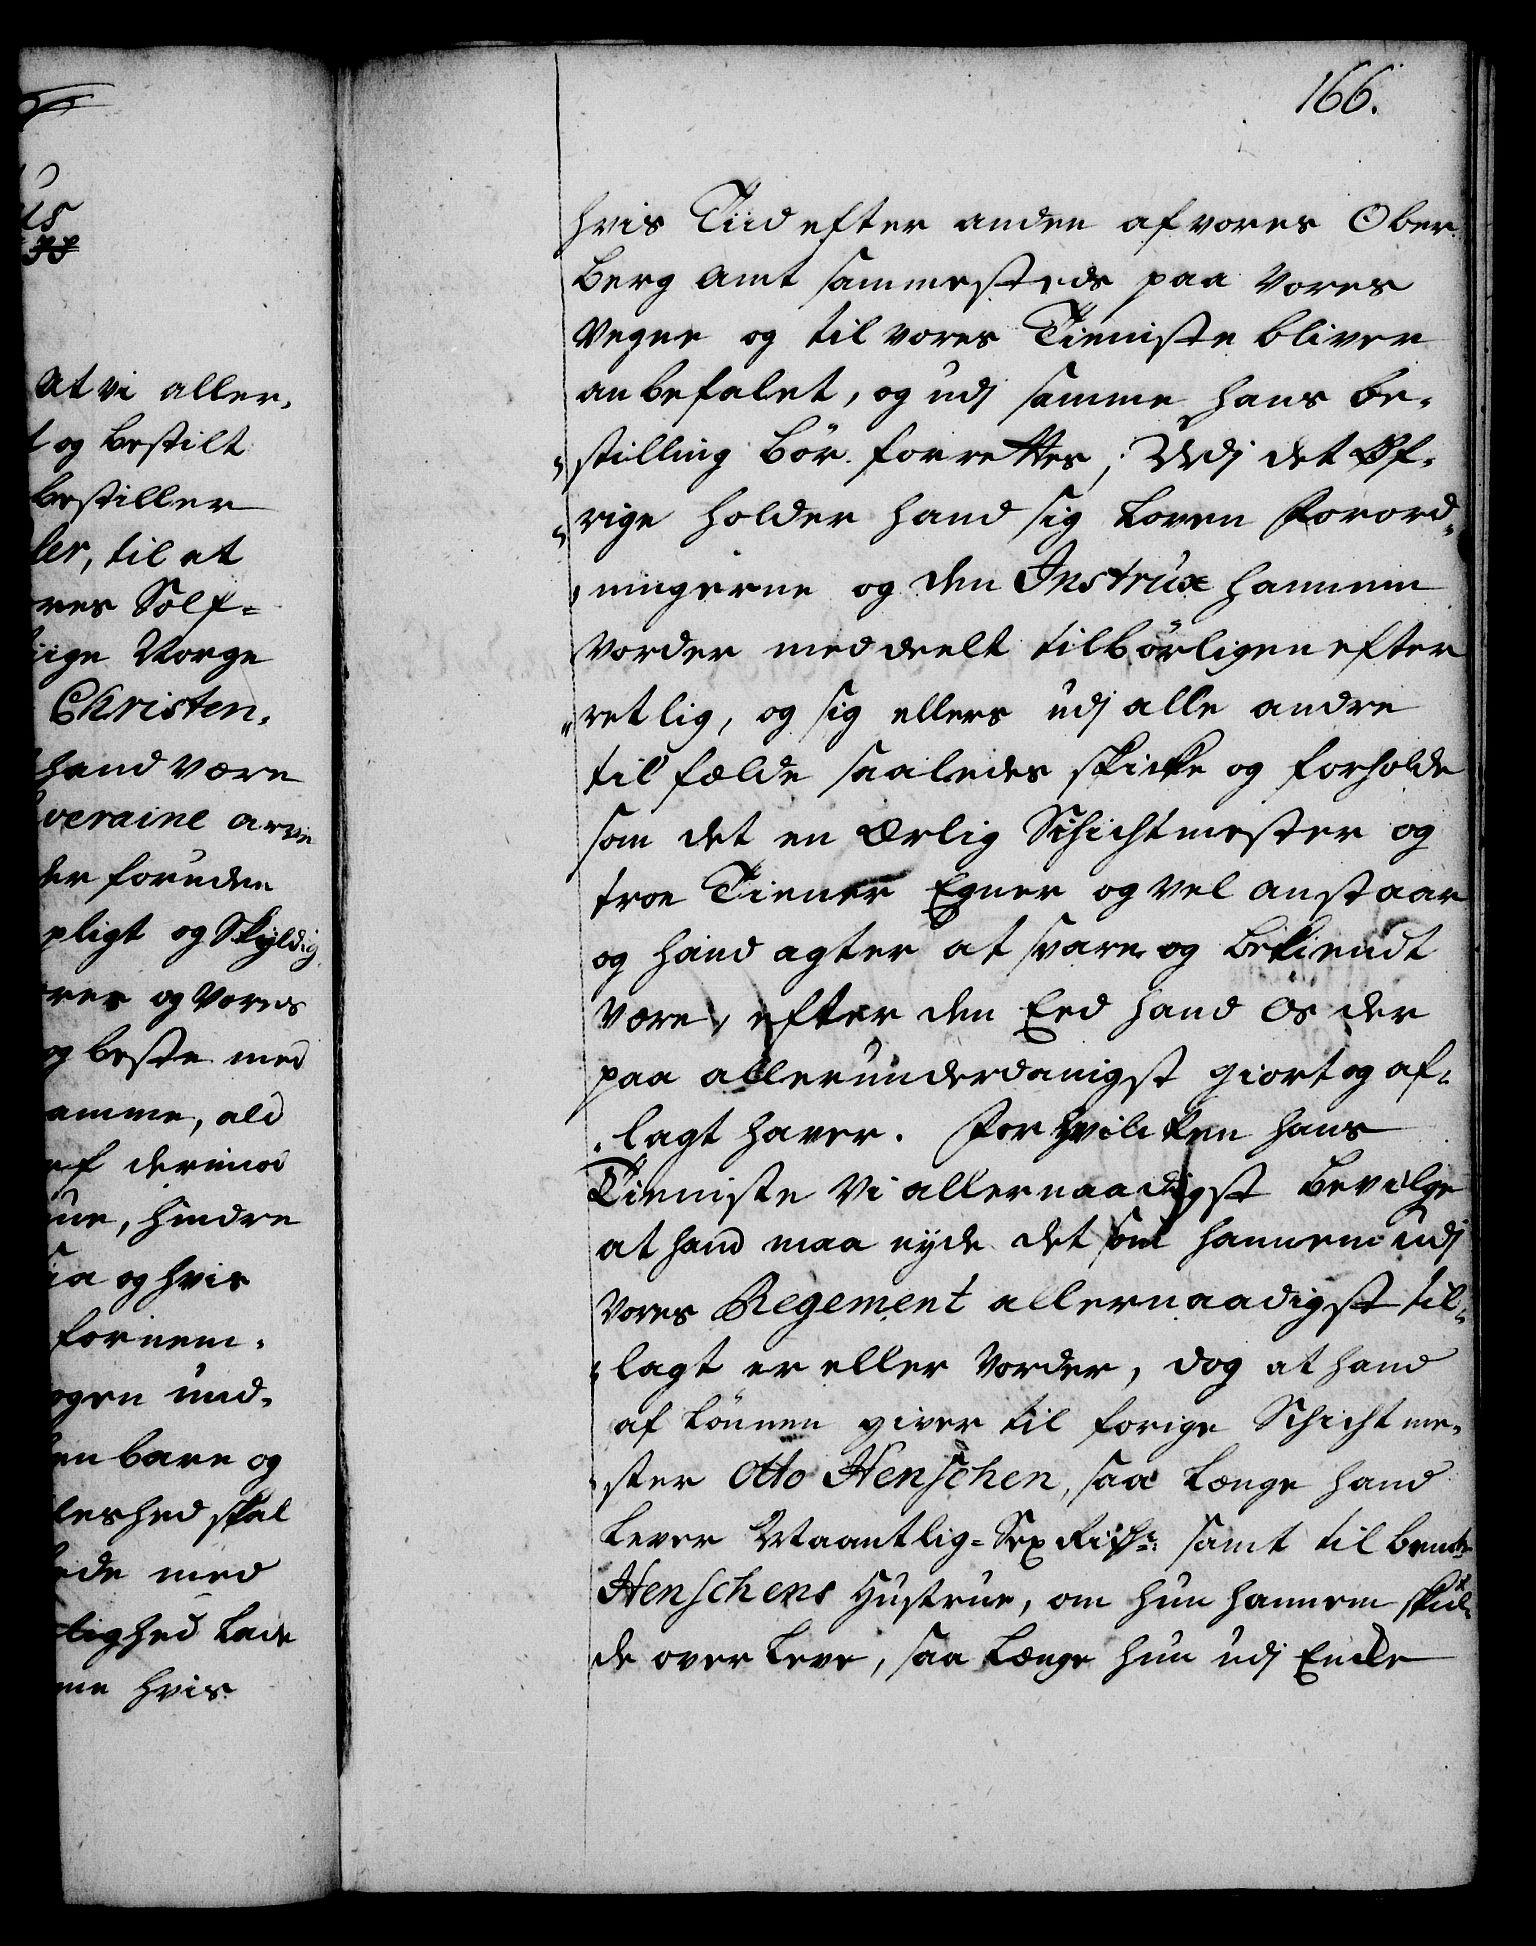 166.
hvis Tiid efter anden af vores Ober
Berg Amt sammesteds paa Vores
Vegne og til vores Tieniste bliver
anbefalet, og udj samme hans be-
stilling bör forrettes; Udj det Öf-
rige holder hand sig Loven Forord-
ningerne og den Instrux hannem
vorder meddeelt tilbörligen efter
retlig, og sig ellers udj alle andre
tilfælde saaledes skicke og forholde
som det en Ærlig Schichtmester og
troe Tiener Egner og vel anstaar
og hand agter at svare og bekiendt
være, efter den Eed hand Os der
paa allerunderdanigst giort og af-
lagt haver. For hvilcken hans
Tieniste Vi allernaadigst Bevilge
at hand maa nyde det som hannem udj
Vores Regement allernaadigst til-
lagt er eller vorder, dog at hand
af Lönnen giver til forige Schichtme-
ster Otto Henschen, saa Længe hand
Lever Maantlig-Sex Rixdr: samt til bemte
Henschens Hustrue, om hun hannem skul-
de over Leve, saa Længe hun udj Encke
At vi aller-
og bestilt
bestiller
ler, til at
res Sölf-
ige Norge
Christen-
hand være
veraine arve
der foruden
pligt og Skyldig
res og Vores
og beste med
amme, ald
ef derimod
ue, hindre
ia og hvis
fornem-
ogen und-
en bare og
leshed skal
ede med
lighed Lade
me hvis